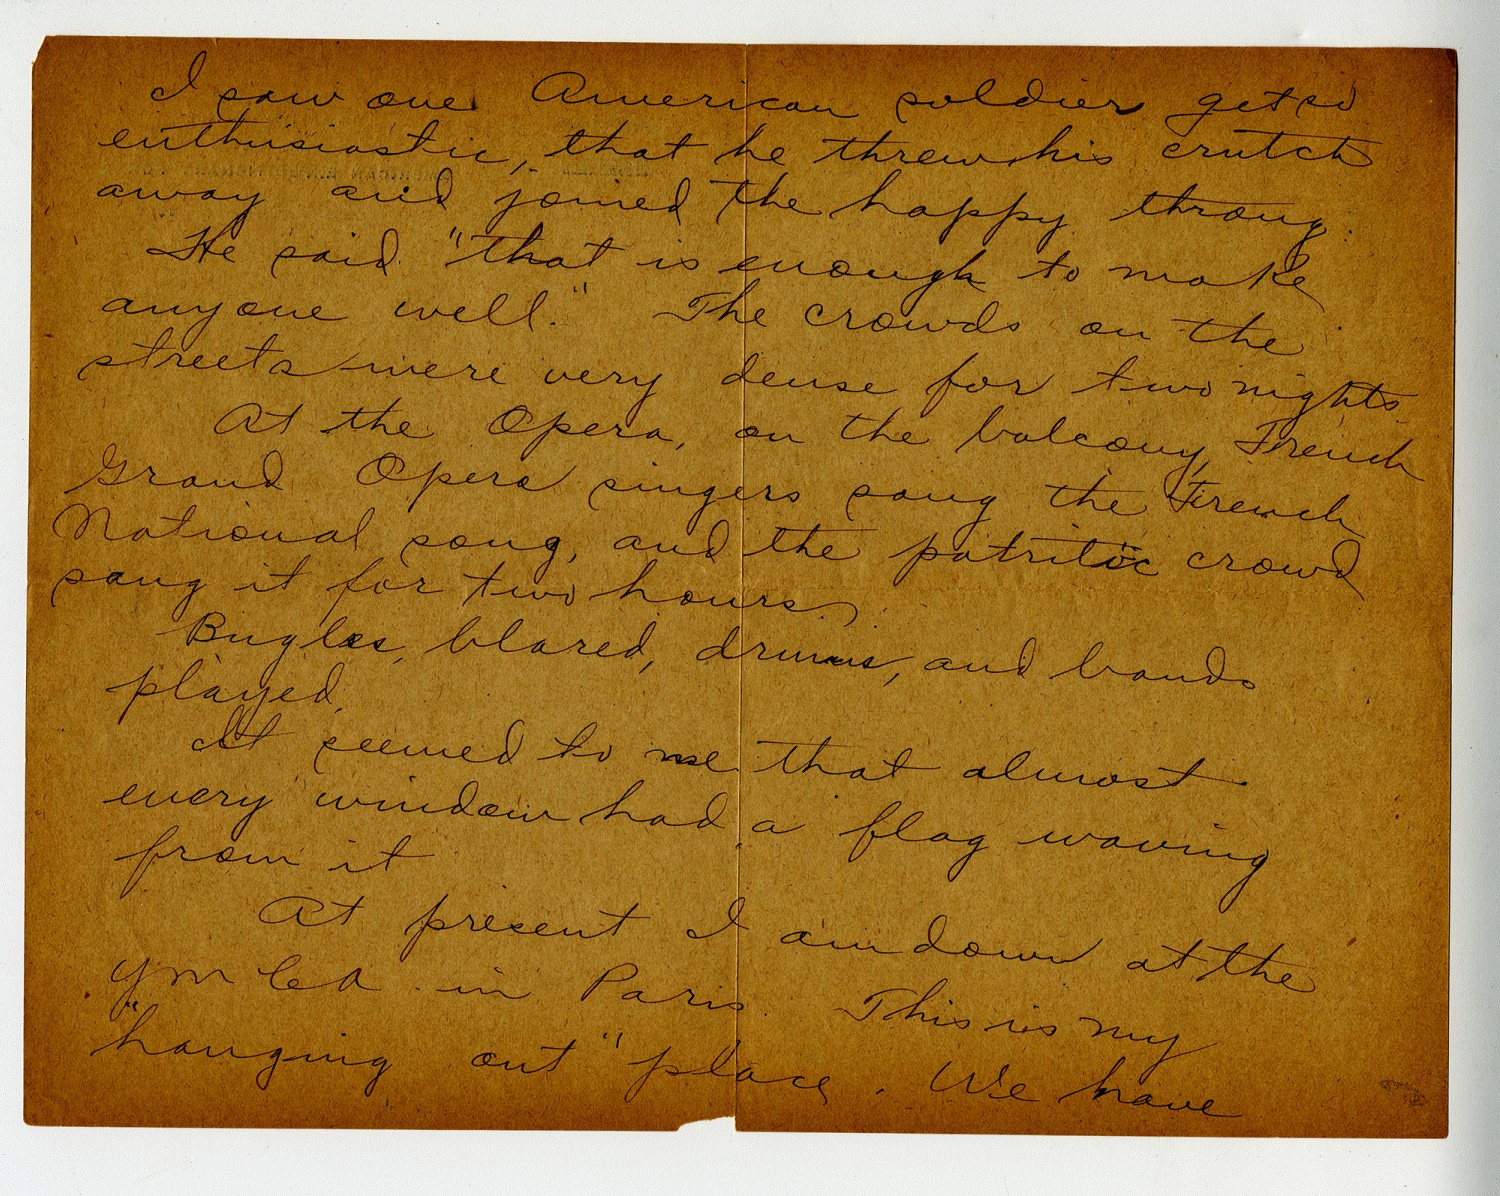 I saw one American soldier get so
enthusiastic, that he threw his crutch
away and joined the happy throng.
He said "that is enough to make
anyone well." The crowds on the
streets were very dense for two nights.
At the Opera, on the balcony, French
Grand Opera singers sang the French
National song, and the patritoic crowd
sang it for two hours
Bugles, blared, drums, and bands
played.
It seemed to me that almost
every window had a flag waving
from it
At present I am down at the
YMCA in Paris. This is my
"hanging out" place. We have